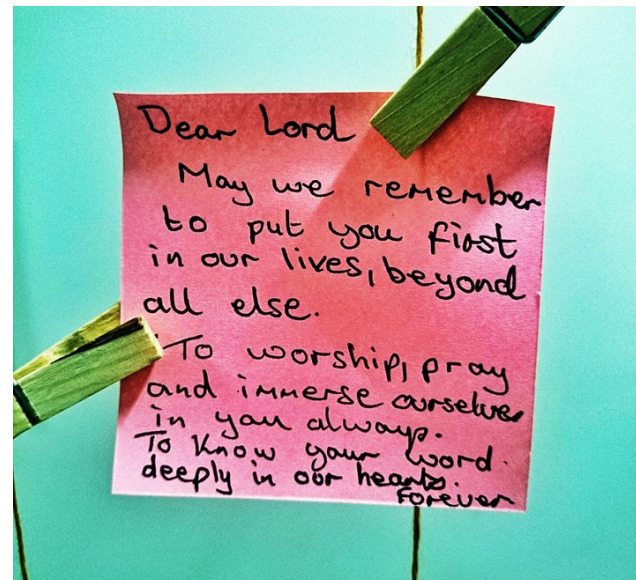 Dear Lord
May we remember
to put you first
in our lives, beyond
all else.
To worship, pray
and immerse ourselves
in you always.
To Know your word.
deeply in our hearts.
Forever